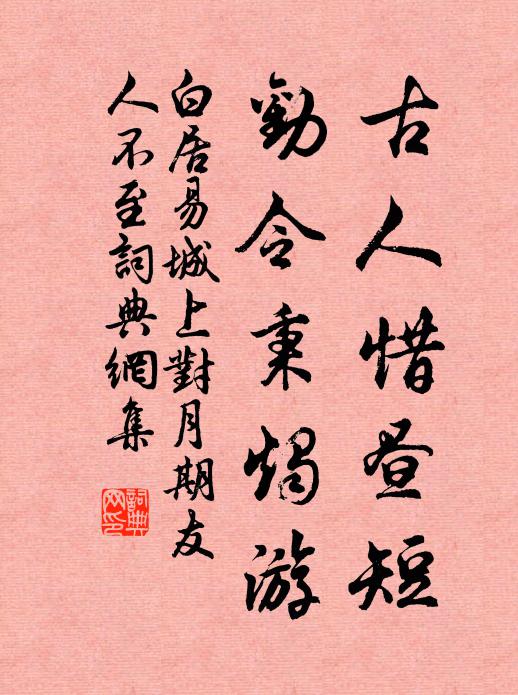 古人惜昼短
勸令秉燭游
白居易城上對月期友
人不至詞典網集
詞典網印